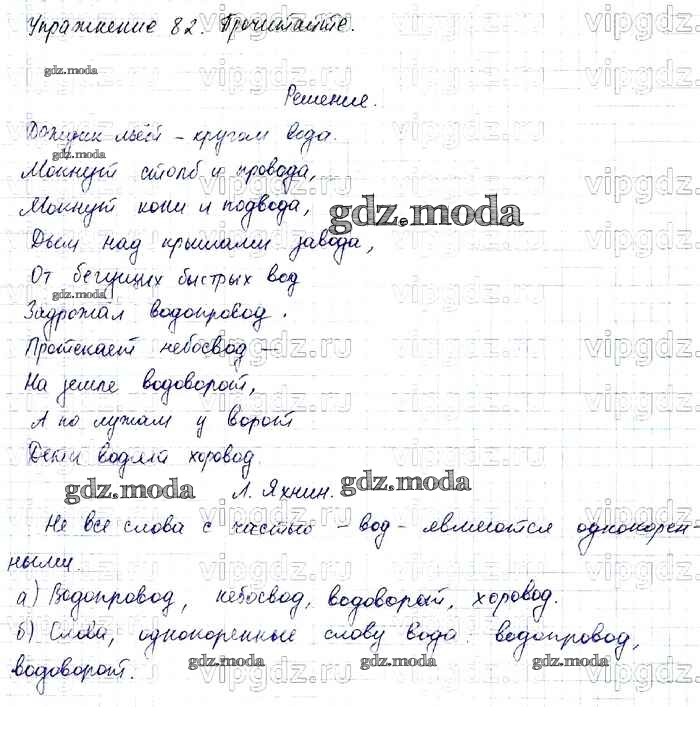 Упражнение 82. Прочитайте.
Решение.
Дождик льёт – кругом вода.
Мокнут столб и провода,
Мокнут кони и подвода,
Дым над крышами завода,
От бегущих быстрых вод
Задрожал водопровод.
Протекает небосвод –
На земле водоворот,
А по лужам у ворот
Дети водят хоровод.
Л. Яхнин.
Не все слова с частью – вод – являются однокорен-
ными.
а) Водопровод, небосвод, водоворот, хоровод.
б) Слова, однокоренные слову вода: водопровод,
водоворот.
gdz.moda
vipgdz.ru